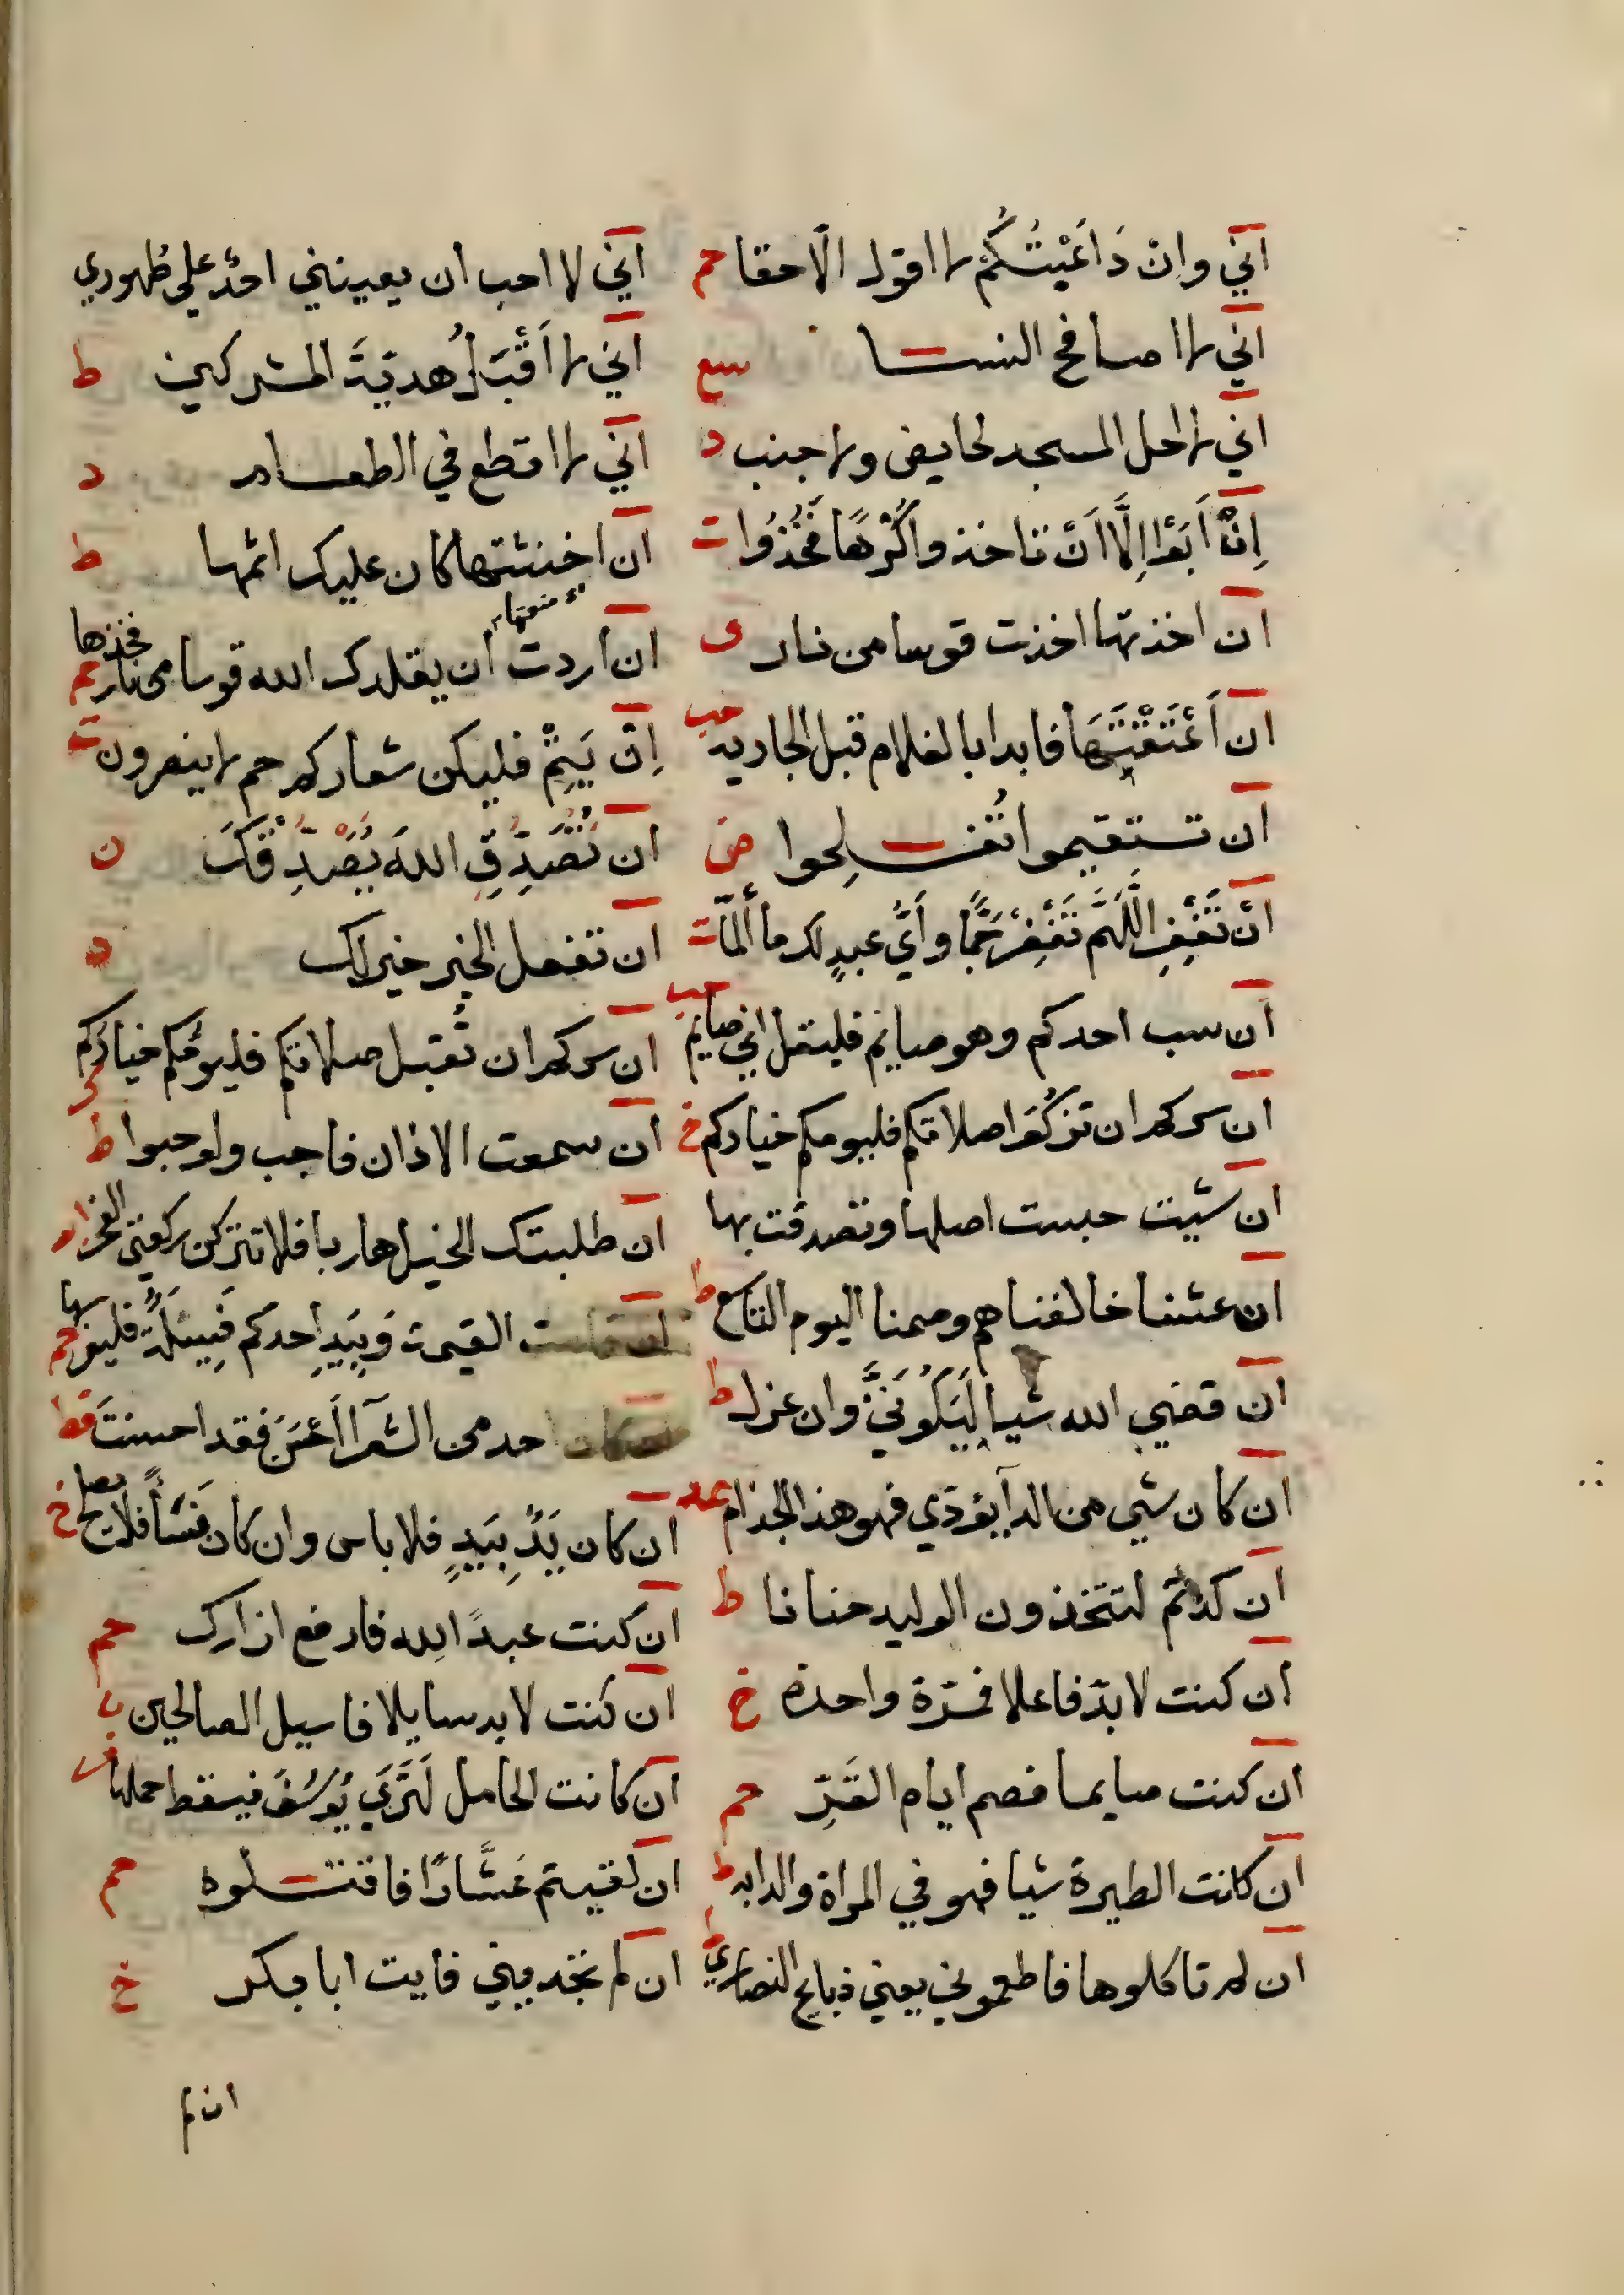 اني وانْ دَاعَيْتُكُمْ لا اقول الّا حقا حم
اني لا اصافح النسا سع
اني لا احل المسجد لحايض ولا جنب د
اِنْ اَبَوْا اِلَّا اَنْ تاخذوا كُرْهًا فَخُذُوا ت
ان اخذتها اخذت قوسا من نار ى
ان اَعْتَقْتِهَا فابدا بالغلام قبل الجارية حب
ان تستقيموا تُفلحوا ض
انْ تَغْفِرِ اللَّهُمَّ تَغْفِرْ جَمًّا وأَيُّ عبدٍ لك ما أَلَمَّا ت
ان سب احدكم وهو صايم فليقل اني صايم حب
ان سركم ان تَزكُوَا صلاتكم فليومكم خياركم خ
ان شيت حبست اصلها وتصدقت بها
ان عشنا خالفناهم وصمنا اليوم التاسع ط
ان قضي الله شيا لَيَكُونَنَّ وان عزل ط
ان كان شي من الدآ يؤدي فهو هذا الجذام عد
ان كدتم لتتخذون الوليد حنانا ط
ان كنت لا بدّ فاعلا فمرّة واحدة خ
ان كنت صايما فصم ايام الغَرِّ حم
ان كانت الطيرة شيا فهو في المراة والدابه ط
ان لم تاكلوها فاطعموني يعني ذبايح النصاري ط
اني لا احب ان يعينني احدٌ علي طهوري
اني لا اَقْبَلُ هديّةَ المشركين ط
اني لا اقتطع في الطعام د
ان اخنثتها كان عليك اثمها ط
ان اردت ان يقلدك الله قوسا من نار فخذها حم
اِنْ بَيَتِمْ فليكن شعاركم حم لا ينصرون ت
ان تَصْدِقِ اللهَ يَصْدِقْكَ ن
ان تفعل الخير خير لك
ان سركم ان تُقبل صلاتكم فليؤمكم خياركم
ان سمعت الاذان فاجب ولو حبوا ط
ان طلبتك الخيل هاربا فلا تتركن ركعتي الفجر
ان قامت القيمة وَبِيَدِ احدكم فَسِيْلَةٌ فليغرسها حم
احد من الشعرآ اَحْسَنَ فقد احسنتَ قط
ان كان يَدًّ بِيَدٍ فلا باس وان كان نَسَأً فلا يصلح خ
ان كنت عبدً الله فارفع ازارك حم
ان كنت لابد سايلا فاسيل الصالحين
ان كانت الحامل لَتَرَي يُوسُفَ فيسقط حملها
ان لقيتم عَشَّارًا فاقتلوه حم
ان لم تجديني فايت ابا بكر خ
ان لم